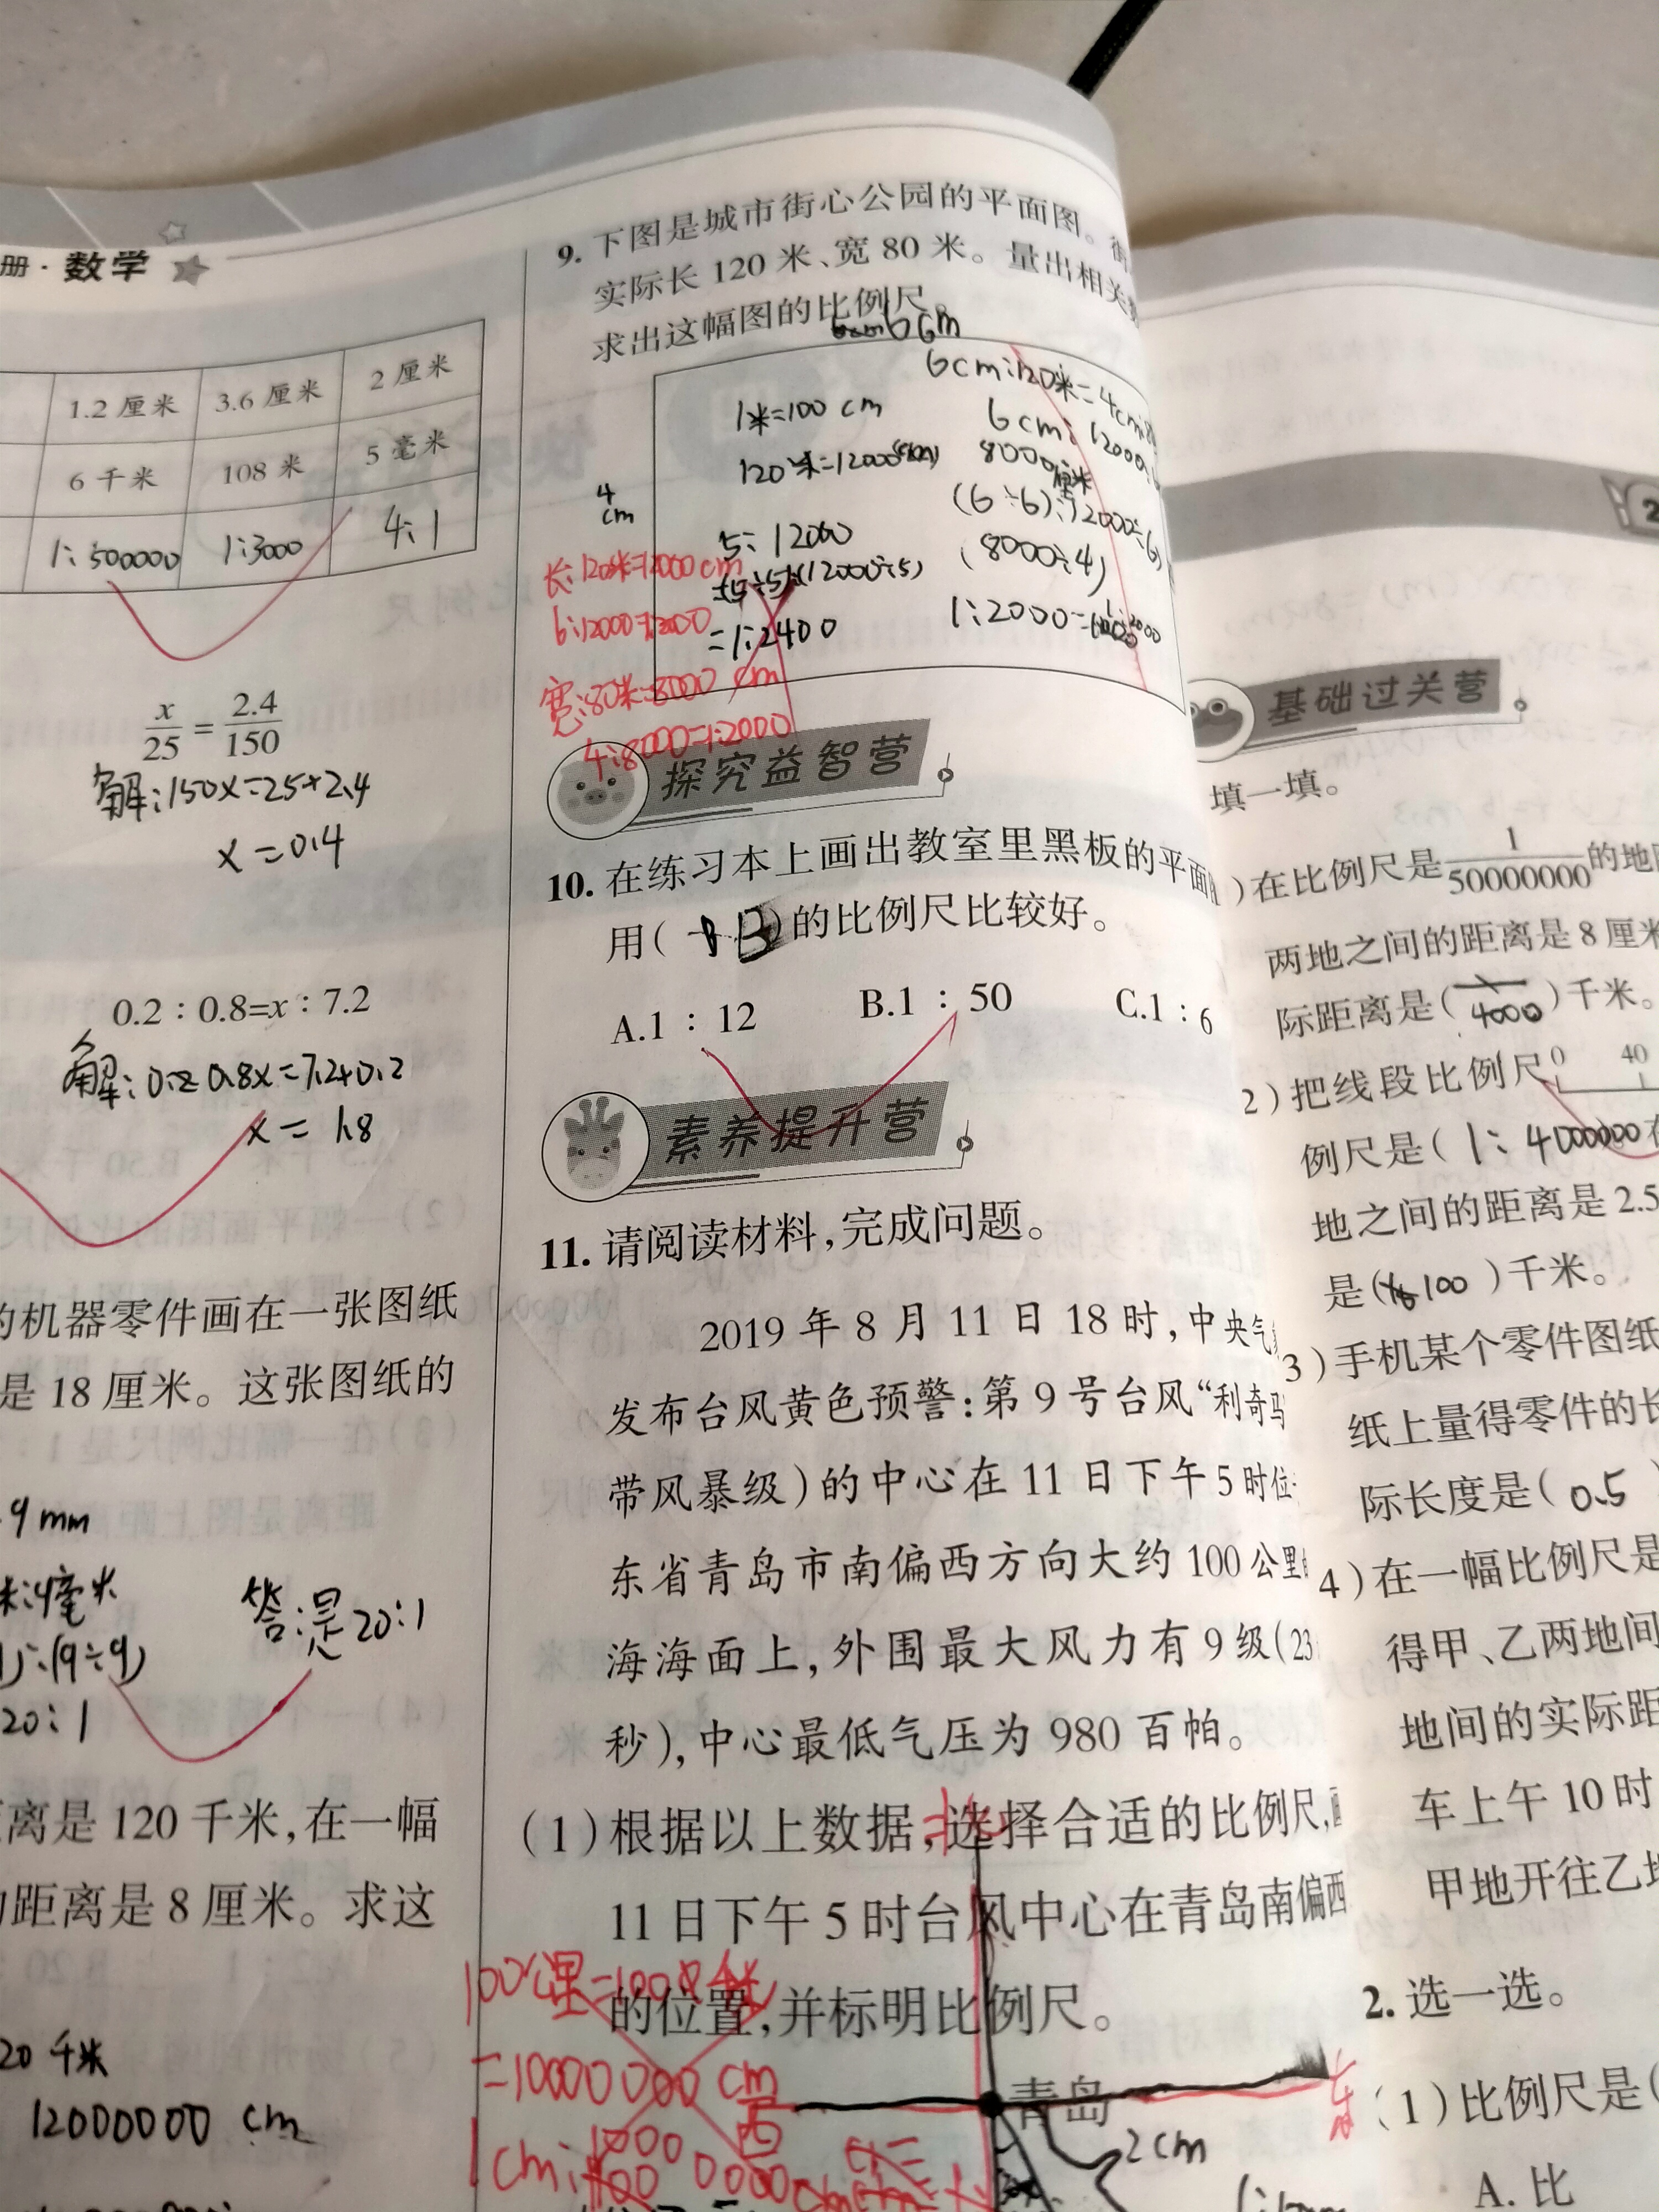 册·数学
1.2厘米 3.6厘米 2厘米
6千米 108米 5毫米
1:500000 1:3000 4:1
x/25 = 2.4/150
解:150x=25×2.4
x=0.4
0.2:0.8=x:7.2
x=1.8
的机器零件画在一张图纸
是18厘米。这张图纸的
9mm
答:是20:1
20:1
离是120千米,在一幅
距离是8厘米。求这
20千米
12000000 cm
9.下图是城市街心公园的平面图。
实际长120米、宽80米。量出相关
求出这幅图的比例尺。
6cm
6cm:120米=4cm:
1米=100cm
6cm:12000
120米=12000(cm)
8000厘米
4cm
(6÷6):(12000÷6)
5:12000
(8000÷4)
=(5÷5):(12000÷5)
=1:2400
1:2000
长:120米=12000cm
6:12000=1:2000
宽:80米=8000cm
4:8000=1:2000
探究益智营
10.在练习本上画出教室里黑板的平面
用( B )的比例尺比较好。
A.1:12 B.1:50 C.1:6
素养提升营
11.请阅读材料,完成问题。
2019年8月11日18时,中央气
发布台风黄色预警:第9号台风“利奇马
带风暴级)的中心在11日下午5时位
东省青岛市南偏西方向大约100公里
海海面上,外围最大风力有9级(23
秒),中心最低气压为980百帕。
(1)根据以上数据,选择合适的比例尺,
11日下午5时台风中心在青岛南偏西
的位置,并标明比例尺。
=10000000cm
西 青岛
2cm
基础过关营
填一填。
)在比例尺是1/50000000的地
两地之间的距离是8厘米
际距离是( 4000 )千米。
2)把线段比例尺 0 40
例尺是( 1:4000000
地之间的距离是2.5
是( 100 )千米。
3)手机某个零件图纸
纸上量得零件的长
际长度是( 0.5
4)在一幅比例尺是
得甲、乙两地间
地间的实际距
车上午10时
甲地开往乙地
2.选一选。
(1)比例尺是(
A.比